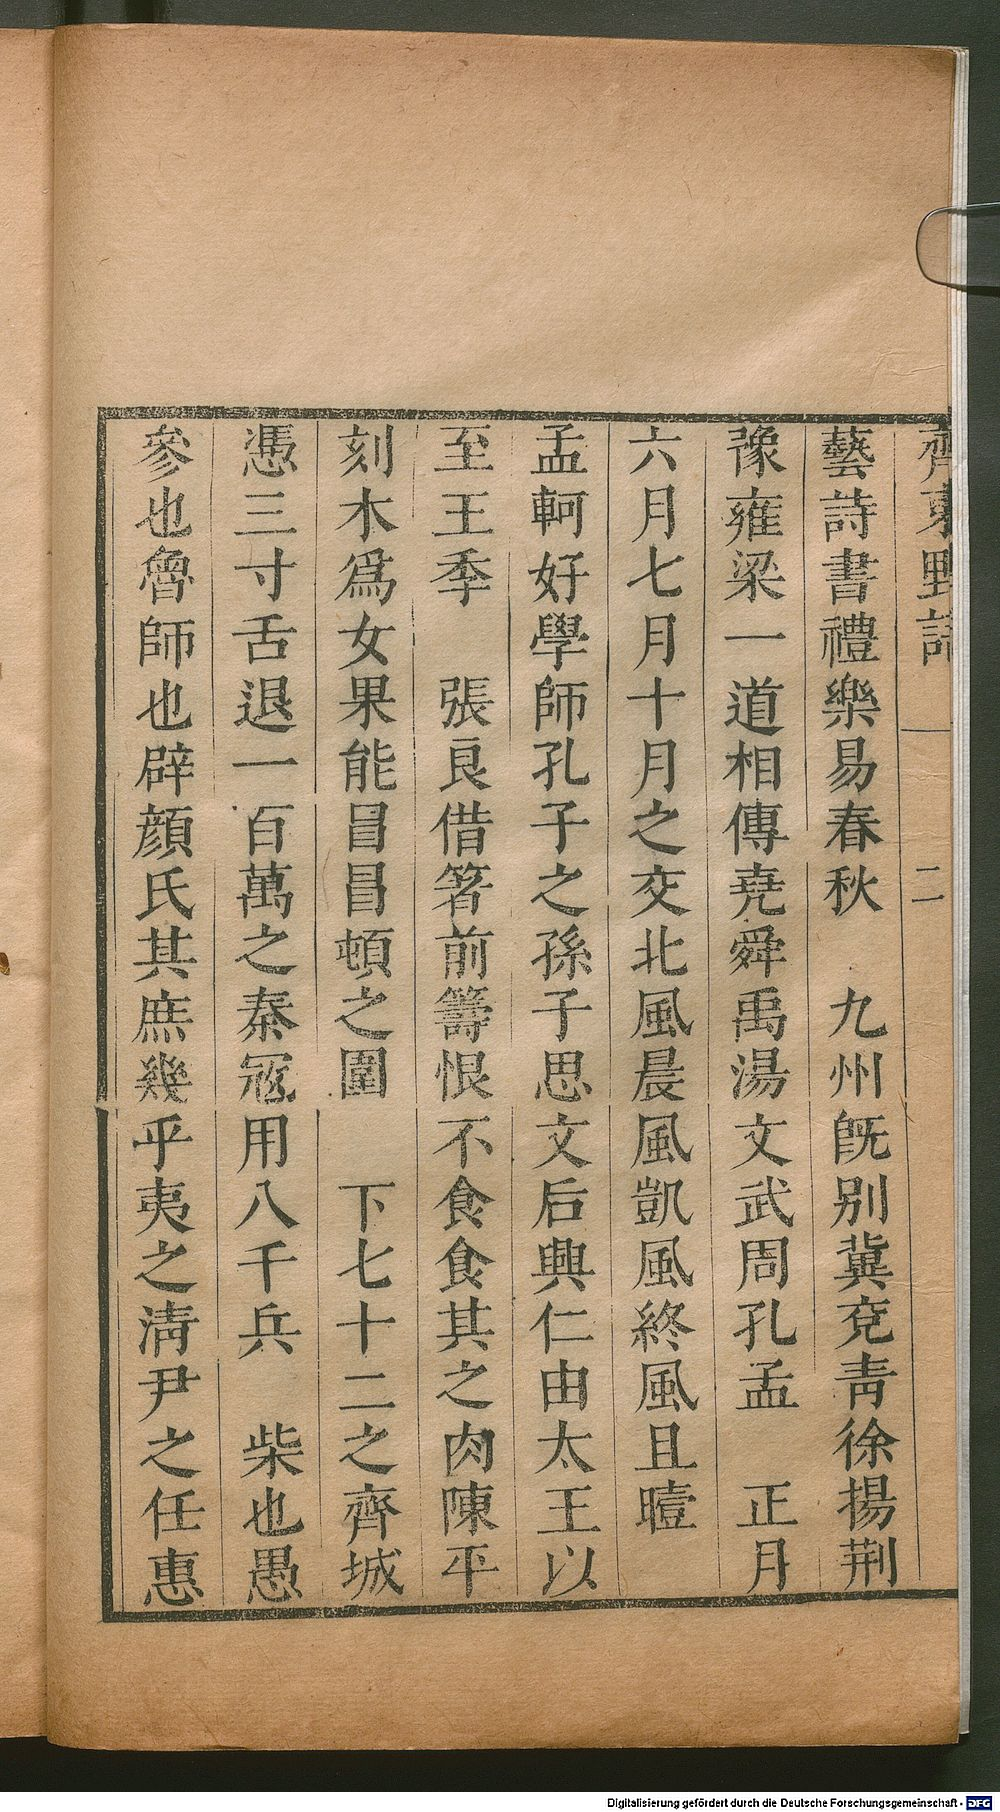 齊東野語 二
藝詩書禮樂易春秋 九州旣别冀兗青徐揚荆
豫雍梁一道相傳堯舜禹湯文武周孔孟 正月
六月七月十月之交北風晨風凱風終風且曀
孟軻好學師孔子之孫子思文后興仁由太王以
至王季 張良借箸前籌恨不食食其之肉陳平
刻木爲女果能冒冒頓之圍 下七十二之齊城
憑三寸舌退一百萬之秦冦用八千兵 柴也愚
參也魯師也辟顔氏其庶幾乎夷之清尹之任惠
Digitalisierung gefördert durch die Deutsche Forschungsgemeinschaft - DFG